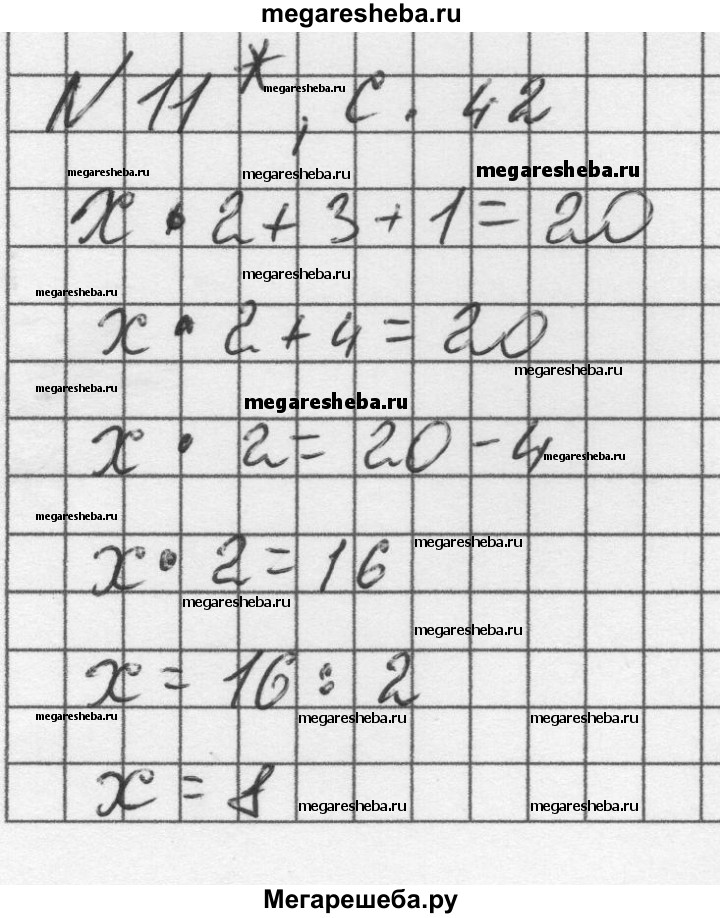 megaresheba.ru
N 11*, с. 42
megaresheba.ru
megaresheba.ru megaresheba.ru megaresheba.ru
x · 2 + 3 + 1 = 20
megaresheba.ru
megaresheba.ru
x · 2 + 4 = 20
megaresheba.ru
megaresheba.ru
megaresheba.ru
x · 2 = 20 - 4
megaresheba.ru
megaresheba.ru
megaresheba.ru
x · 2 = 16
megaresheba.ru
megaresheba.ru
x = 16 : 2
megaresheba.ru megaresheba.ru megaresheba.ru
x = 8
megaresheba.ru megaresheba.ru
Мегарешеба.ру